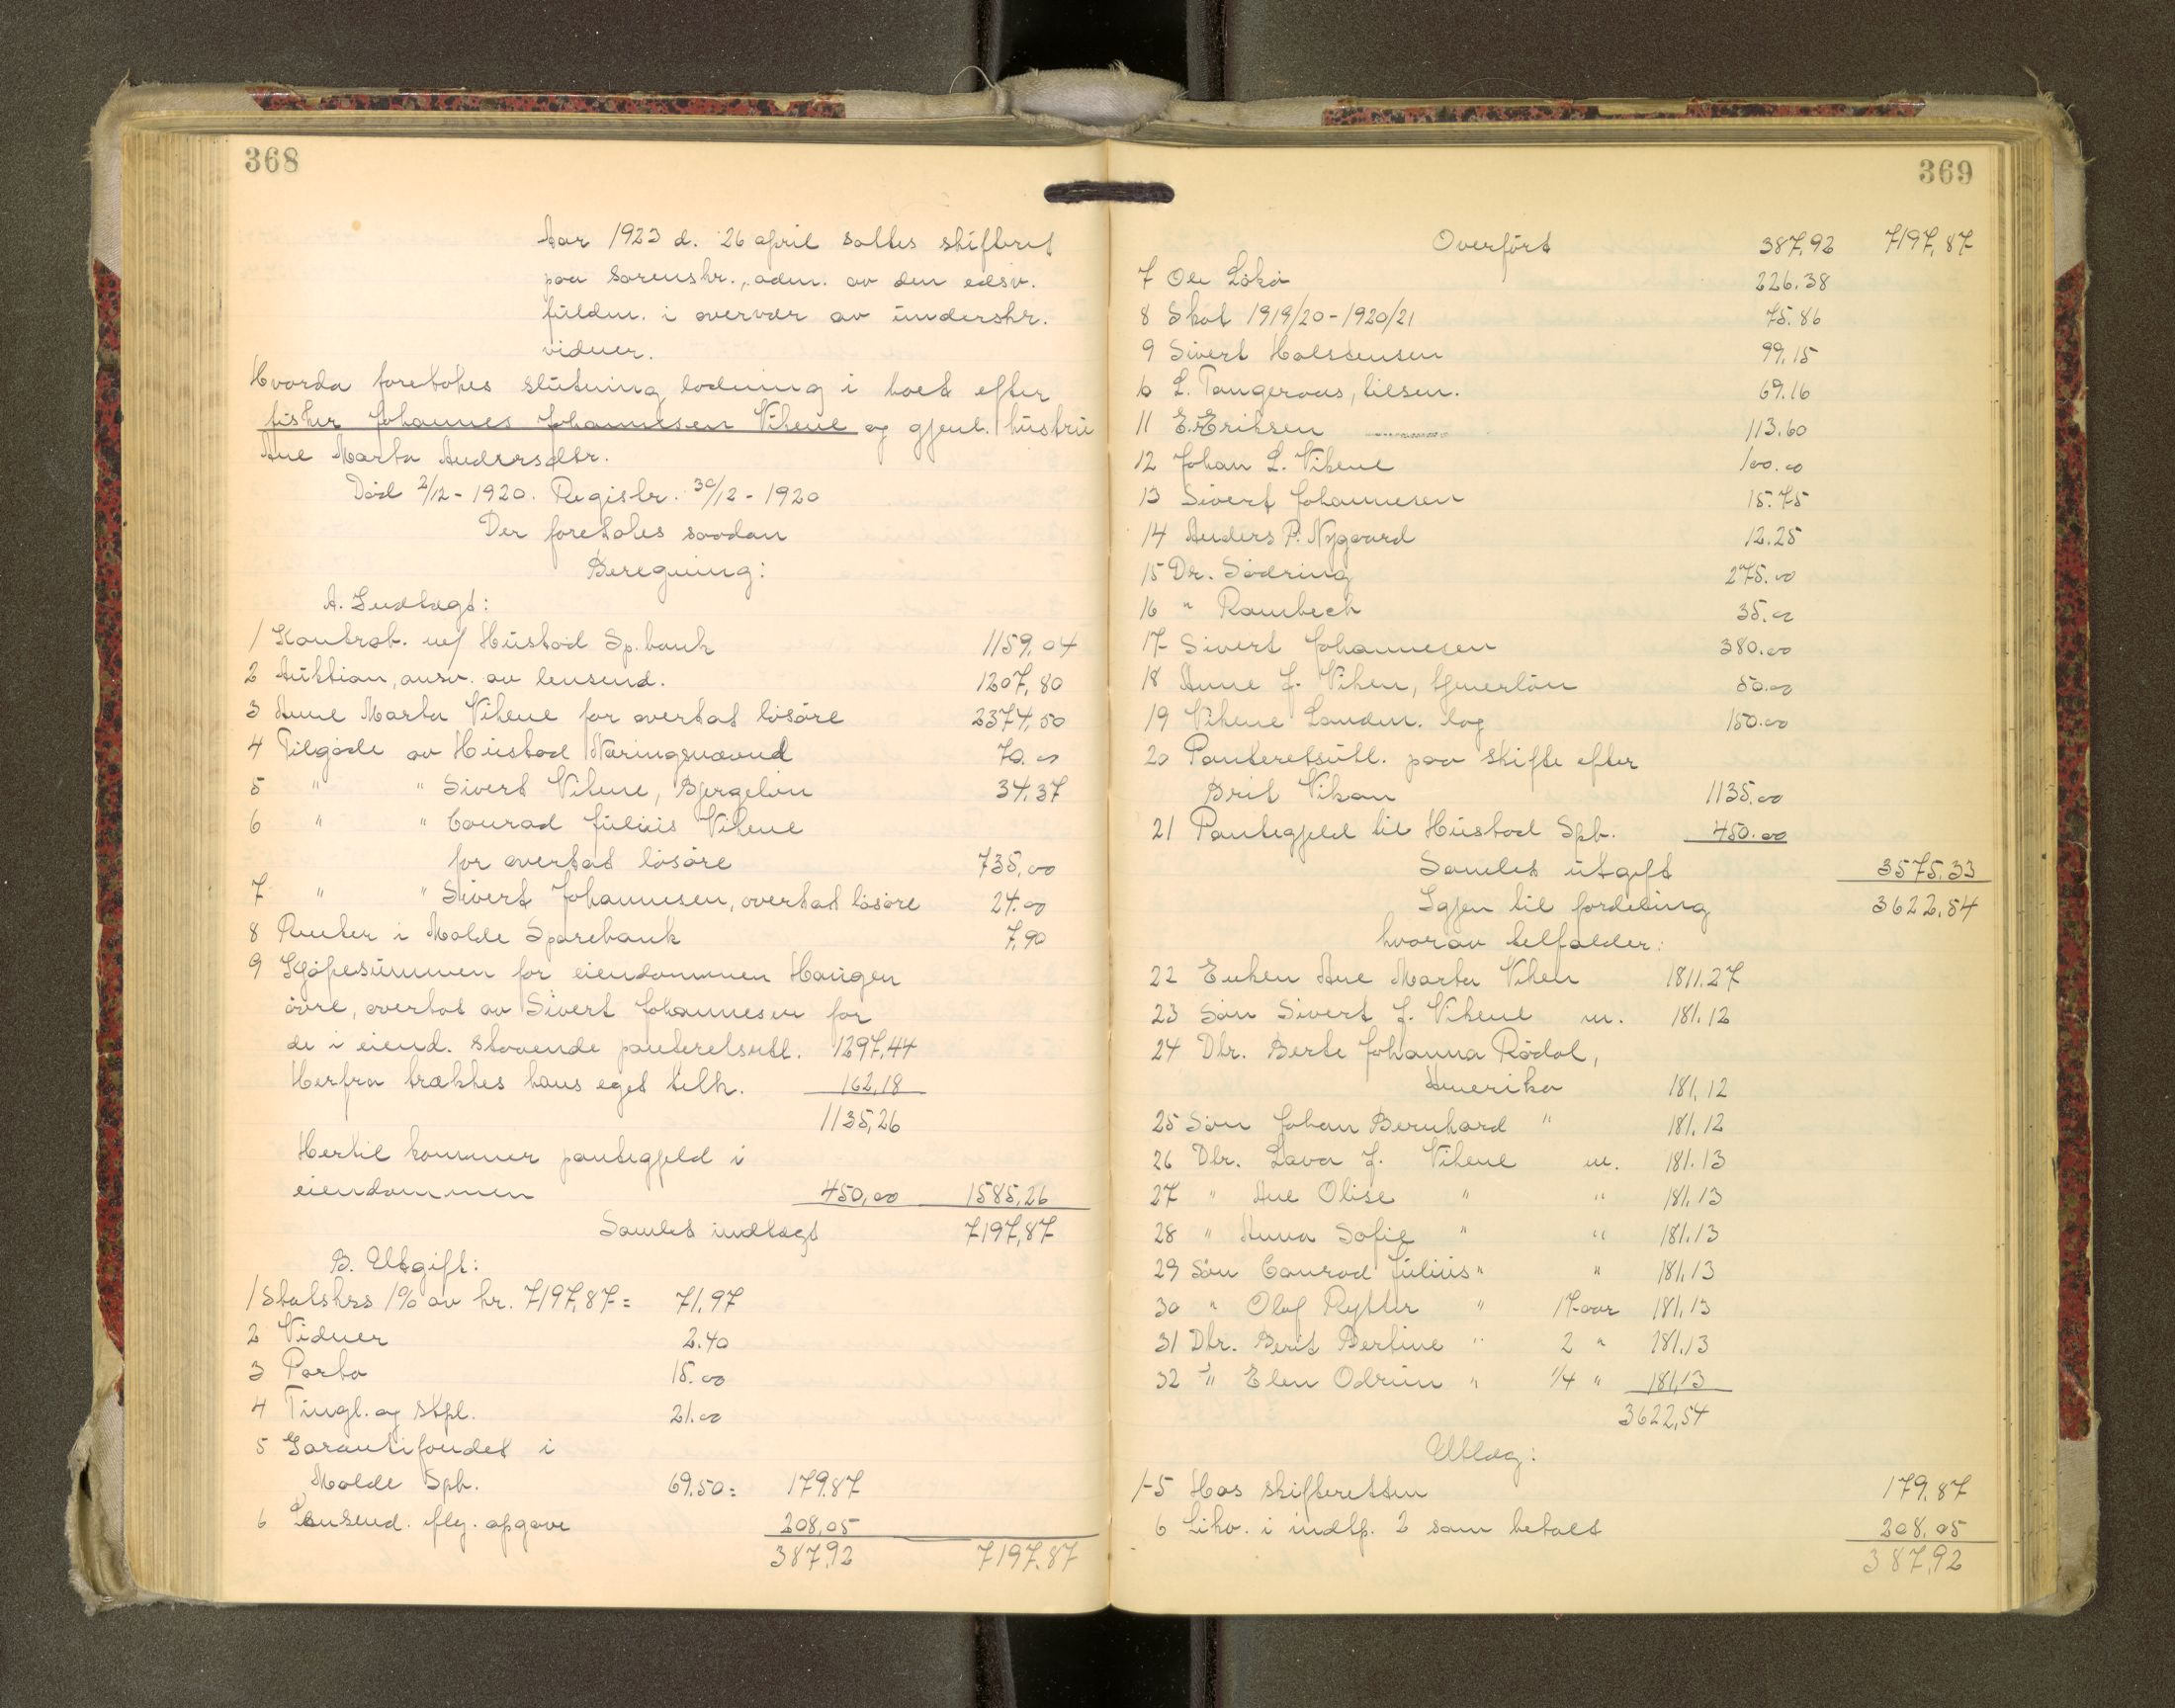 368
Aar 1923 d. 26 april sattes skifteret
paa sorenskr., adm. av den edsv.
fuldm. i overvær av underskr.
vidner.
Hvorda foretokes slutning lodning i boet efter
fisker Johannes Johannesen Vikene og gjenl. hustru
Ane Marta Andersdtr.
Død 2/12 - 1920. Registr. 30/12 - 1920
Der foretokes saadan
Beregning:
A. Indtægt:
1 Kontrab. m/ Hustad Sp.bank 1159,04
2 Auktion, ansv. av lensmd. 1207,80
3 Ane Marta Vikene for overtat løsøre 2374,50
4 Tilgode av Hustad Næringsnævnd 70.00
5 " " Sivert Vikene, Bjergeløn 34.37
6 " " Conrad Julius Vikene
for overtat løsøre 735,00
7 " " Sivert Johannesen, overtat løsøre 24.00
8 Renter i Molde Sparebank 7,90
9 Kjøpesummen for eiendommen Haugen
øvre, overtat av Sivert Johannesen for
de i eiend. staaende panteretsutl. 1297,44
Herfra trækkes hans eget tilk. 162,18
1135,26
Hertil kommer pantegjeld i
eiendommen 450,00 1585,26
Samlet indtægt 7197,87
B. Utgift:
1 Statskas 1% av kr. 7197,87 = 71,97
2 Vidner 2.40
3 Porto 15.00
4 Tingl. og stpl. 21.00
5 Garantifondet i
Molde Spb. 69.50 = 179.87
6 Lensmd. flg. opgave 208,05
387,92 7197.87
369
Overført 387,92 7197,87
7 Ole Løkø 226.38
8 Skat 1919/20 - 1920/21 75.86
9 Sivert Halstensen 99,15
10 L. Tangeraas, lilsen. 69.16
11 E. Eriksen 113.60
12 Johan L. Vikene 100.00
13 Sivert Johannesen 15.75
14 Anders P. Nygaard 12.25
15 Dr. Sødring 275.00
16 " Rambech 35.00
17 Sivert Johannesen 380.00
18 Anne J. Viken, tjenerløn 50.00
19 Vikene Landm. lag 150.00
20 Panteretsutl. paa skifte efter
Brit Vikan 1135.00
21 Pantegjeld til Hustad Spb. 450.00
Samlet utgift 3575.33
Igjen til fordeling 3622,54
hvorav tilfalder:
22 Enken Ane Marta Viken 1811.27
23 Søn Sivert J. Vikene m. 181.12
24 Dtr. Berte Johanna Rødal,
Amerika 181,12
25 Søn Johan Bernhard " 181.12
26 Dtr. Lava J. Vikene m. 181.13
27 " Ane Olise " " 181.13
28 " Anna Sofie " " 181.13
29 Søn Conrad Julius " " 181,13
30 " Olaf Rytter " 17 aar 181,13
31 Dtr. Berit Bertine " 2 " 181,13
32 " Elen Odrun " 1/4 " 181,13
3622,54
Utlæg:
1-5 Hos skifteretten 179.87
6 Likv. i indtp. 2 som betalt 208.05
387,92